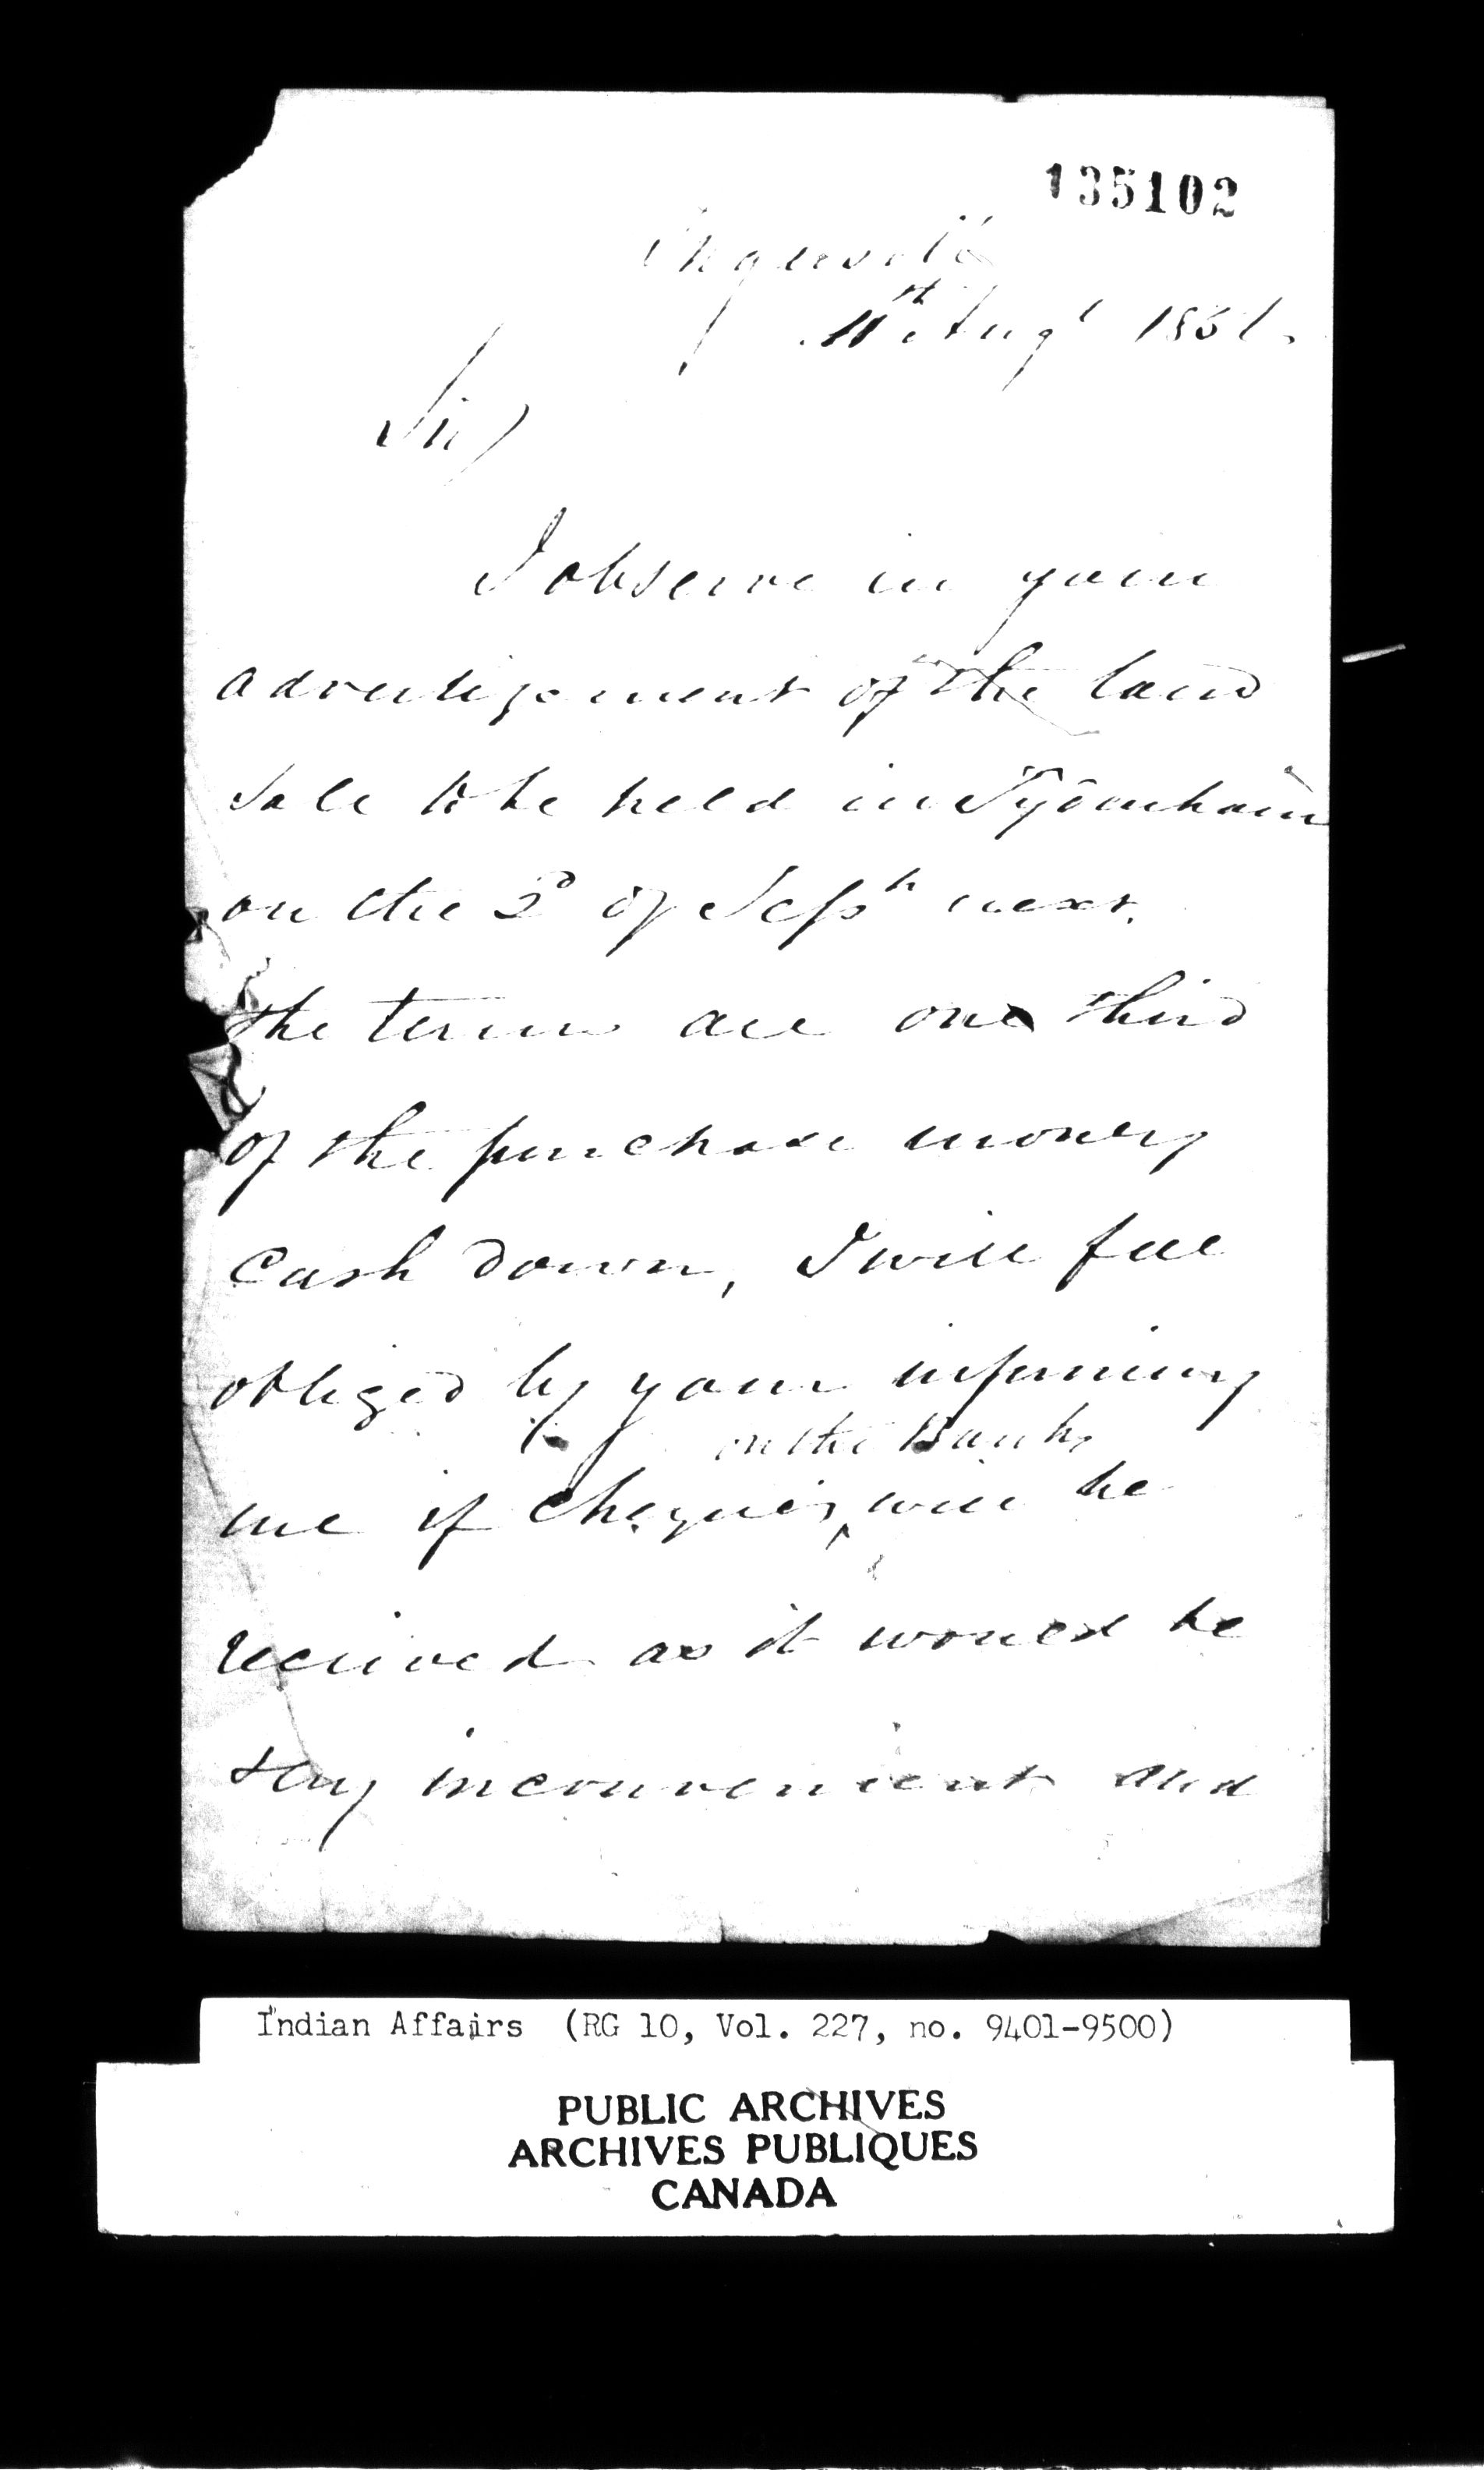 135102
Ingersoll
11th Augt 185
Sir/
I observe in your
advertizement of the land
sale to be held in Sydenham
on the 2d of Septr next.
the terms are one third
of the purchase money
Cash down, I will feel
obliged by your informing
on the Banks
me if Cheques will be
received as it would be
very inconvenient and
Indian Affairs (RG 10, Vol. 227, no. 9401-9500)
PUBLIC ARCHIVES
ARCHIVES PUBLIQUES
CANADA